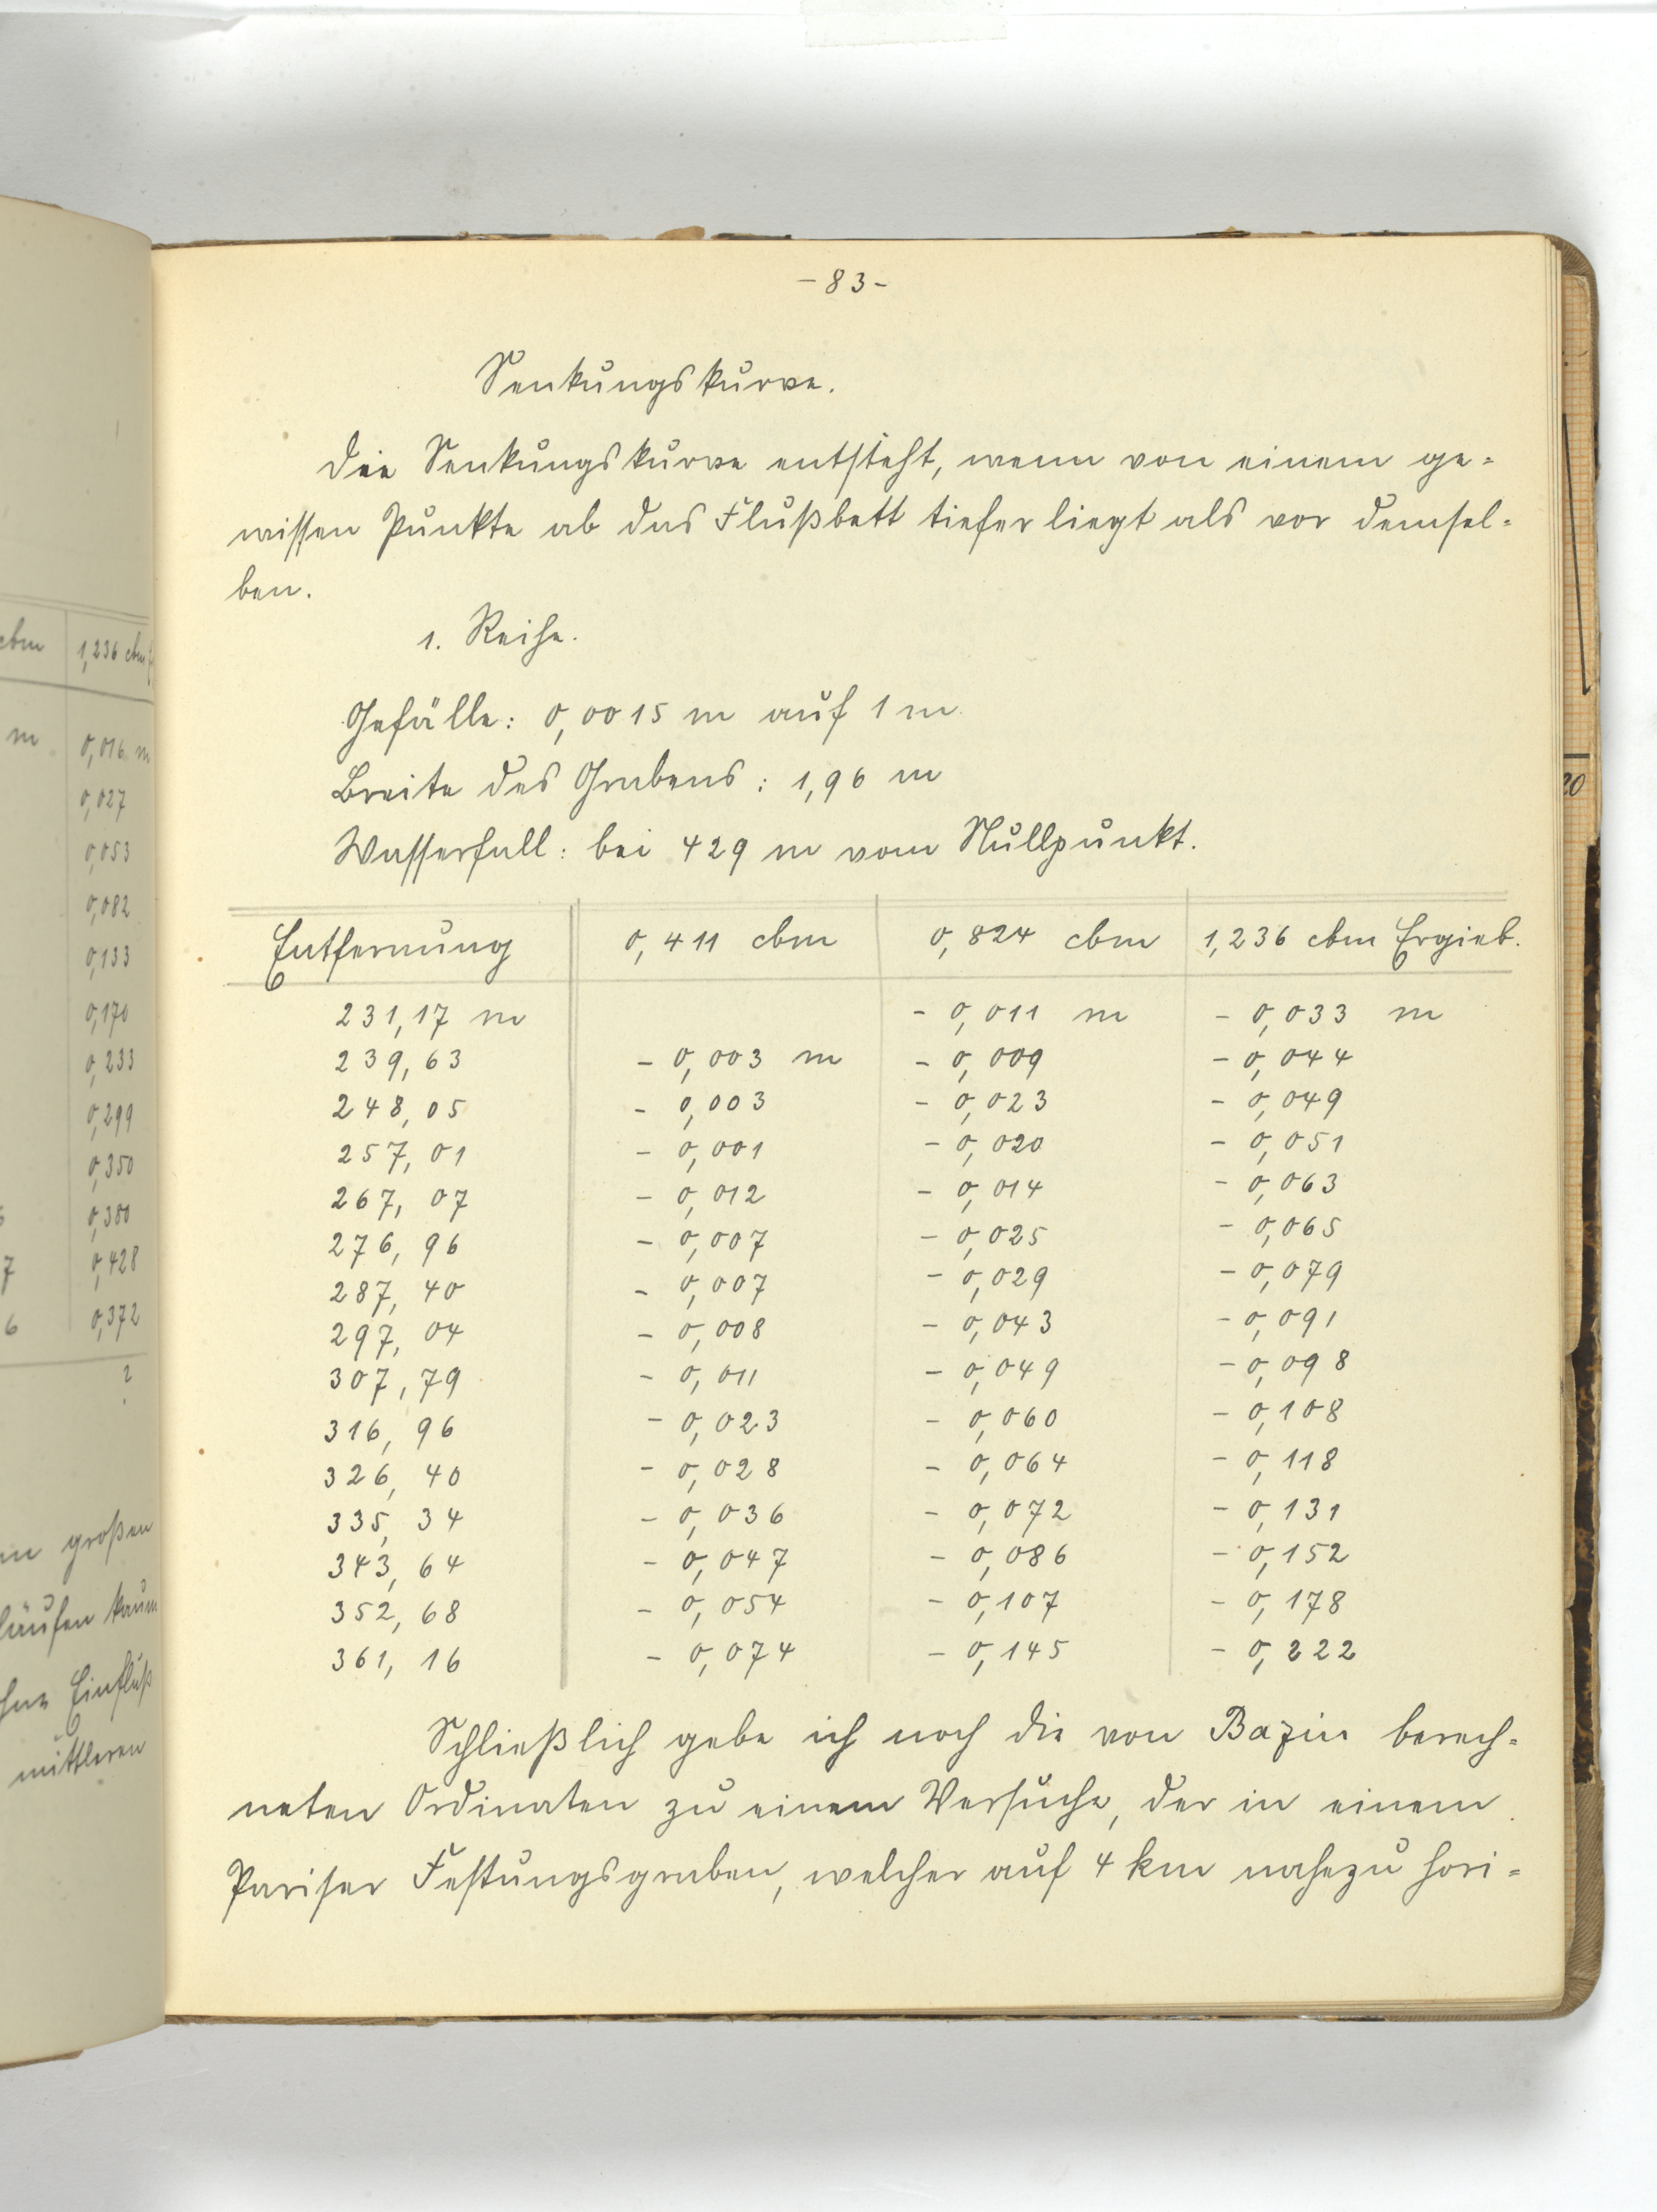 -83-
Senkungskurve.
Die Senkungskurve entsteht, wenn von einem ge=
wissen Punkte ab das Flußbett tiefer liegt als vor demsel=
ben.
1. Reihe.
Gefälle: 0,0015 m auf 1 m.
Breite des Grabens: 1,96 m
Wasserfall: bei 429 m vom Nullpunkt.
Entfernung 0,411 cbm 0,824 cbm 1,236 cbm Ergieb.
231,17 m - 0,011 m - 0,033 m
239,63 - 0,003 m - 0,009 - 0,044
248,05 - 0,003 - 0,023 - 0,049
257,01 - 0,001 - 0,020 - 0,051
267,07 - 0,012 - 0,014 - 0,063
276,96 - 0,007 - 0,025 - 0,065
287,40 - 0,007 - 0,029 - 0,079
297,04 - 0,008 - 0,043 - 0,091
307,79 - 0,011 - 0,049 - 0,098
316,96 - 0,023 - 0,060 - 0,108
326,40 - 0,028 - 0,064 - 0,118
335,34 - 0,036 - 0,072 - 0,131
343,64 - 0,047 - 0,086 - 0,152
352,68 - 0,054 - 0,107 - 0,178
361,16 - 0,074 - 0,145 - 0,222
Schließlich gebe ich noch die von Bazin berech=
neten Ordinaten zu einem Versuche, der in einem
Pariser Festungsgraben, welcher auf 4 km nahezu hori=
cbm 1,236 cbm
m 0,016 m
0,027
0,053
0,082
0,133
0,170
0,233
0,299
0,350
0,380
7 0,428
6 0,372
2
großen
kaum
Einfluß
mittleren
20